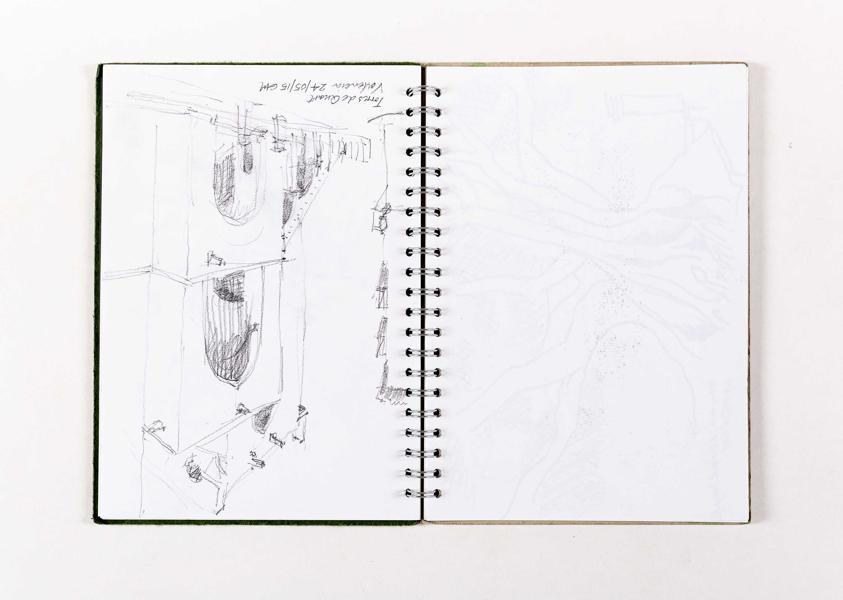 Torres de Quart
Valencia 24/05/15 GM